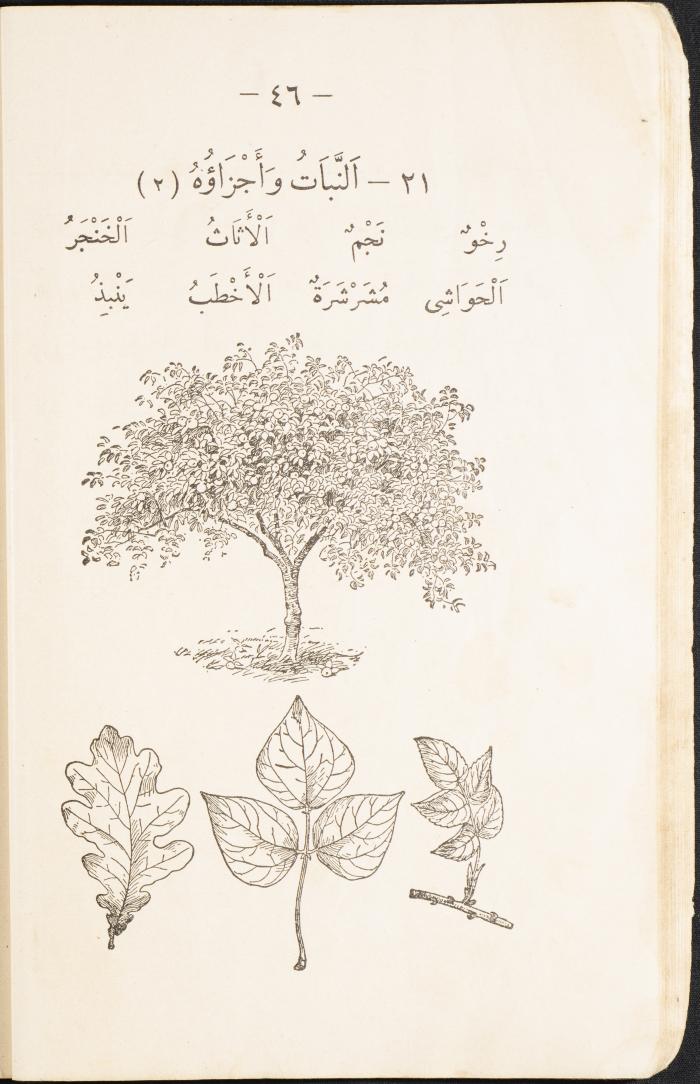 — ٤٦ —
٢١ — اَلنَّبَاتُ وَأَجْزَاؤُهُ (٢)
رِخْوٌ نَجْمٌ اَلْأَثَاثُ اَلْخَنْجَرُ
اَلْحَوَاشِي مُشَرْشَرَةٌ اَلْأَخْطَبُ يَنْبِذُ